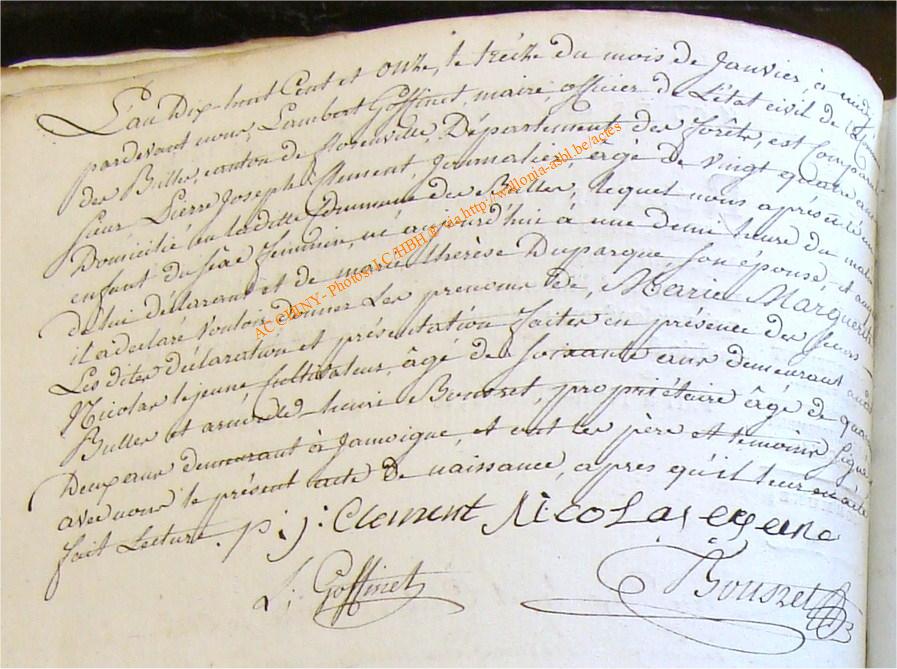 L'an Dix-huit Cent et onze, le treize du mois de Janvier, à midi
pardevant nous, Lambert Goffinet, maire officier de l'état civil de la Commune
des Bulles, canton de florenville, Département des forêts, est Comparu
sieur Pierre Joseph Clement, Journalier, âgé de vingt quatre ans
Domicilié en la ditte Commune des Bulles, lequel nous a présenté un
enfant du sexe féminin, né aujourd'hui à une demi heure du matin
de lui déclarant et de marie thérèse Duparque son épouse, et auquel
il a déclaré vouloir donner les prenoms de, Marie Marguerite
Les dites déclaration et présentation faites en présence des sieurs
Nicolas lejeune Cultivateur, âgé de soixante ans demeurant à
Bulles et henri Bousret, propriétaire âgé de
Deux ans demeurant à Jamoigne, et ont les père et temoins signé
avec nous le présent acte de naissance, apres qu'il leur en a été
fait Lecture. p: j: Clement Nicolas
L: Goffinet Bousret
AC CHINY - Photos J.C/HBH © via http://wallonia-asbl.be/actes